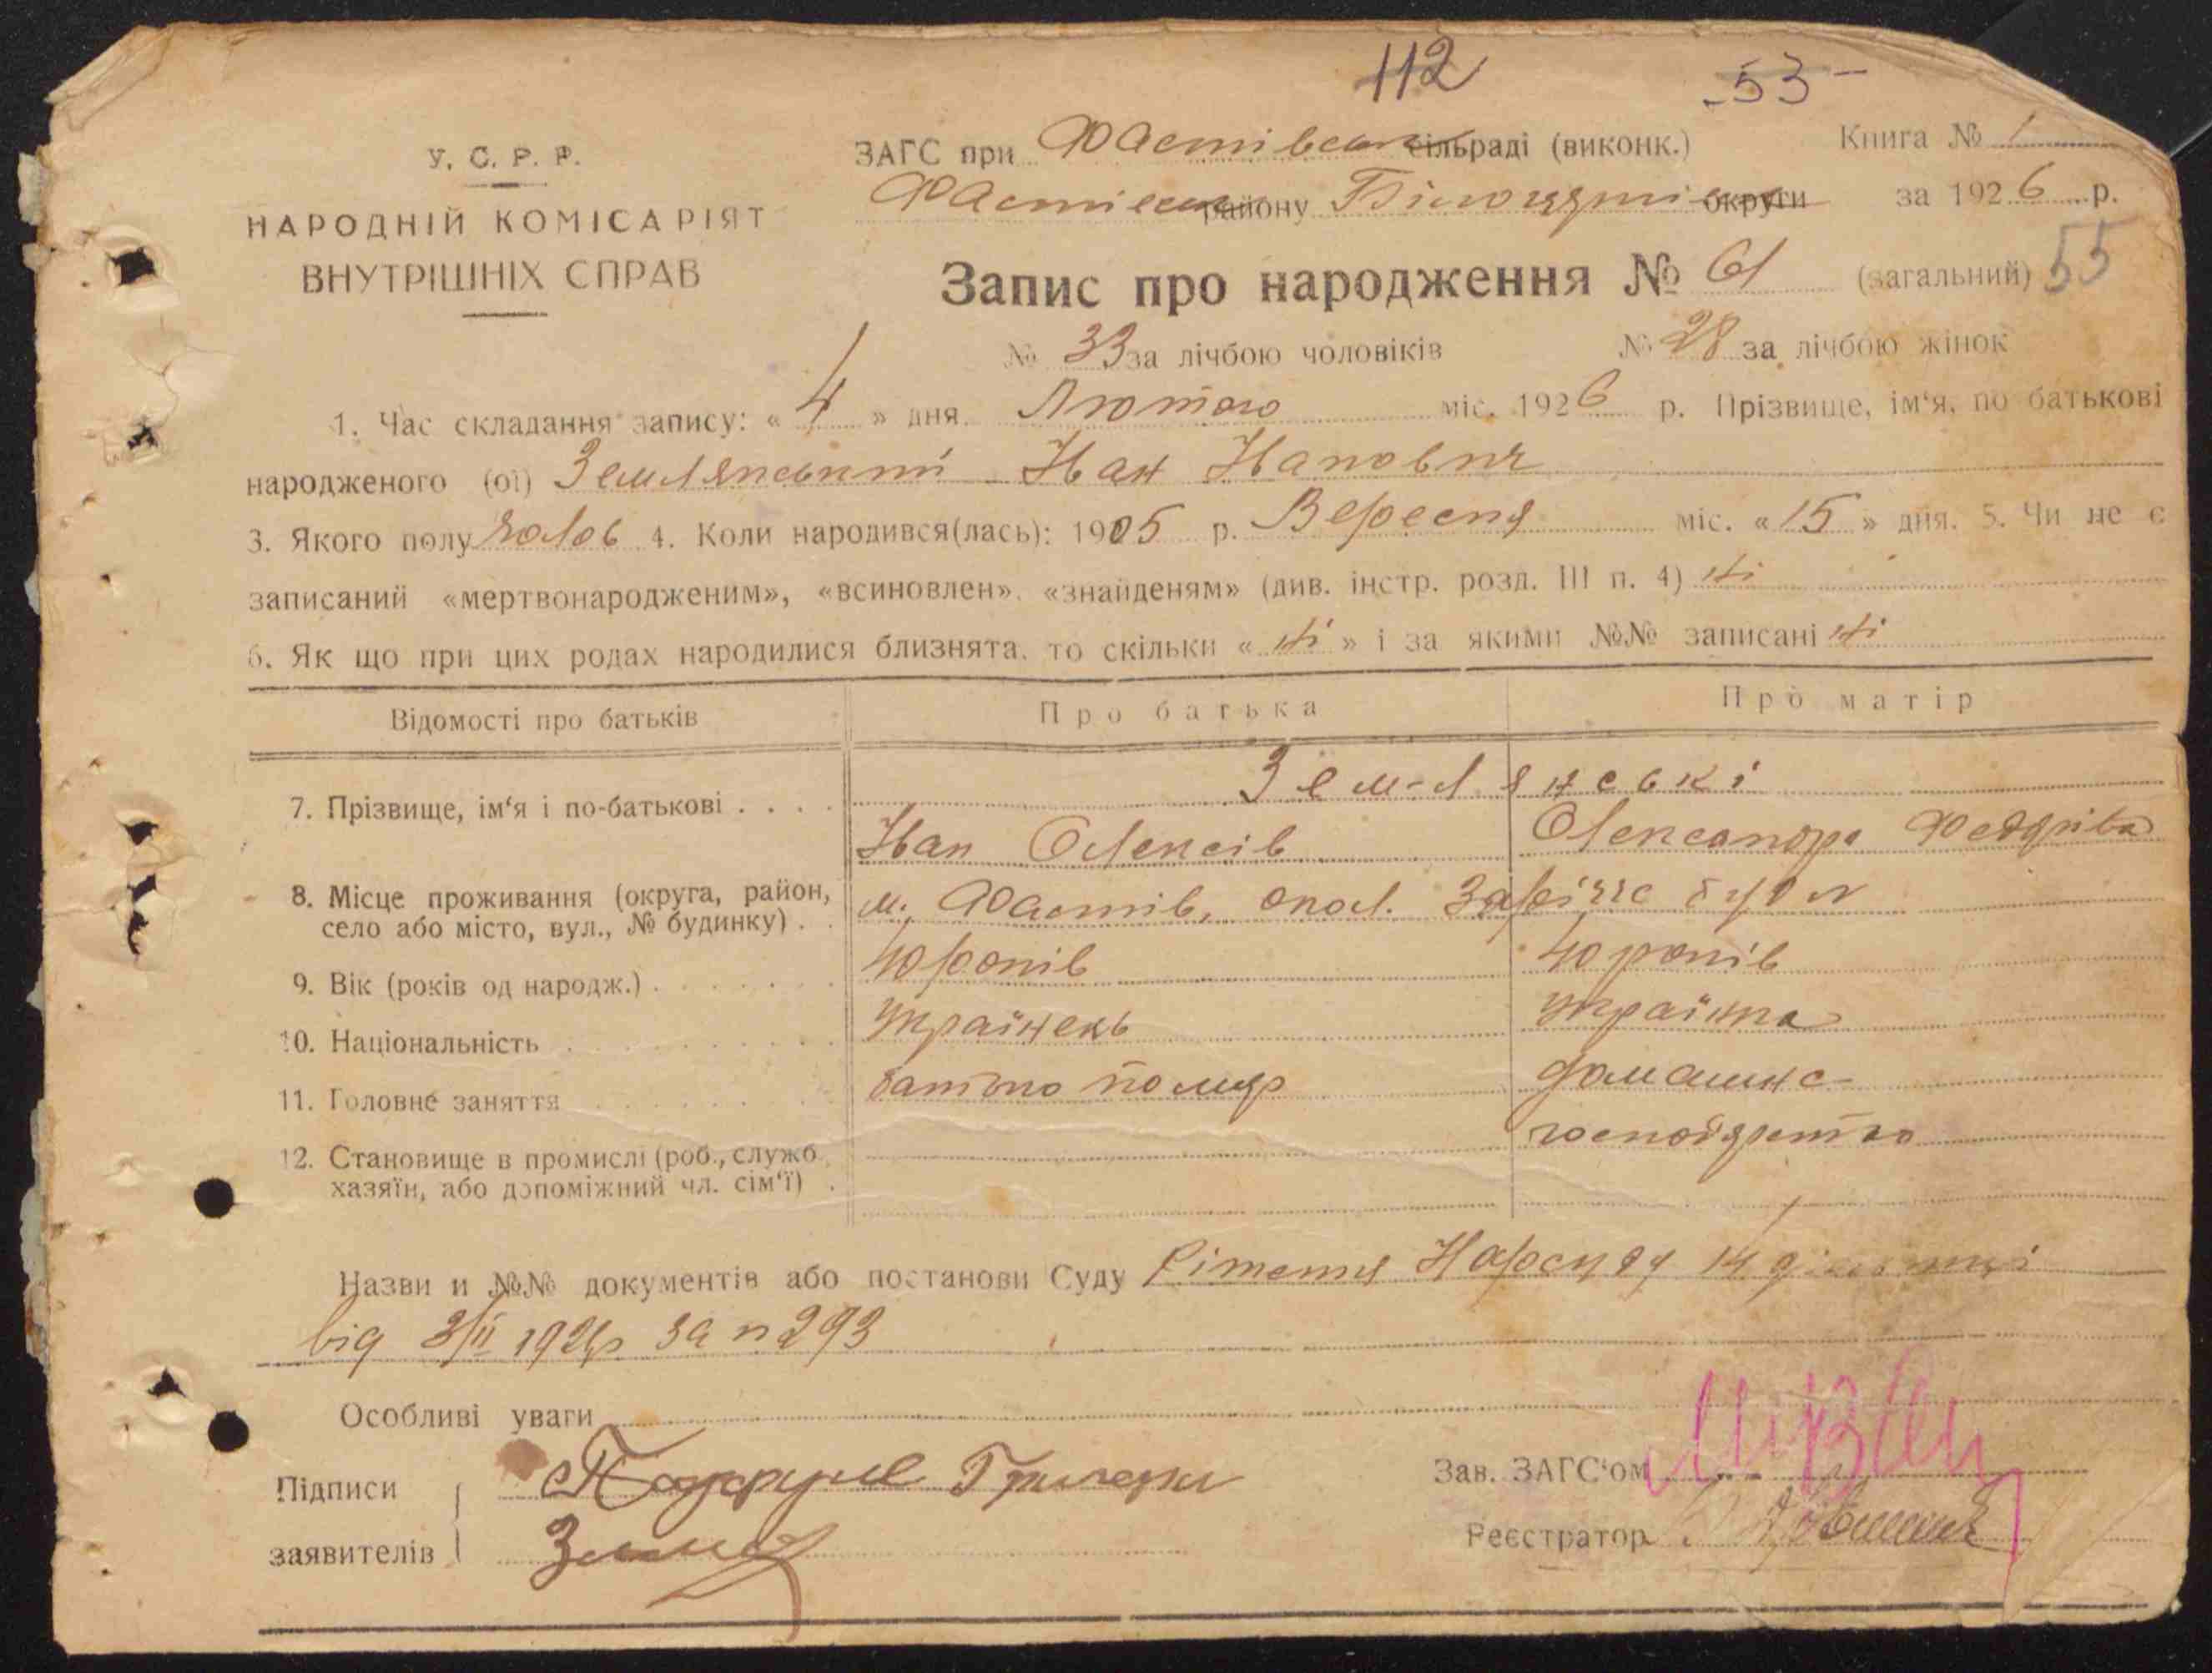 112 53
ЗАГС при Фастівськ сільраді (виконк.) Книга № 1
У. С. Р. Р.
Фастівськ району Білоцерків округи за 1926 р.
НАРОДНІЙ КОМІСАРІЯТ
ВНУТРІШНІХ СПРАВ
Запис про народження № 61 (загальний) 55
№ 33 за лічбою чоловіків № 28 за лічбою жінок
1. Час складання запису: « 4 » дня Лютого міс. 1926 р. Прізвище, ім‘я, по батькові
народженого (ої) Землянський Іван Іванович
3. Якого полу чолов 4. Коли народився(лась): 1905 р. Вересня міс. « 15 » дня. 5. Чи не є
записаний «мертвонародженим», «всиновлен», «знайденям» (див. інстр. розд. III п. 4) ні
6. Як що при цих родах народилися близнята, то скільки « ні » і за якими №№ записані ні
Відомості про батьків Про батька Про матір
7. Прізвище, ім‘я і по-батькові . . . . Землянські
Іван Олексів Олександра Федорівна
8. Місце проживання (округа, район, село або місто, вул., № будинку) . . м. Фастів, Заріччя буд №
9. Вік (років од народж.) . . . . . . . 40 років 40 років
10. Національність . . . . . . . . . . Українець Українка
11. Головне заняття . . . . . . . . . батько помер домашнє
господарство
12. Становище в промислі (роб., служб.,
хазяїн, або допоміжний чл. сім‘ї) .
Назви и №№ документів або постанови Суду Рішення Нарсуду 14 дільниці
від 3/II 1926р за № 293
Особливі уваги
Підписи
заявителів
Зав. ЗАГС‘ом
Реєстратор